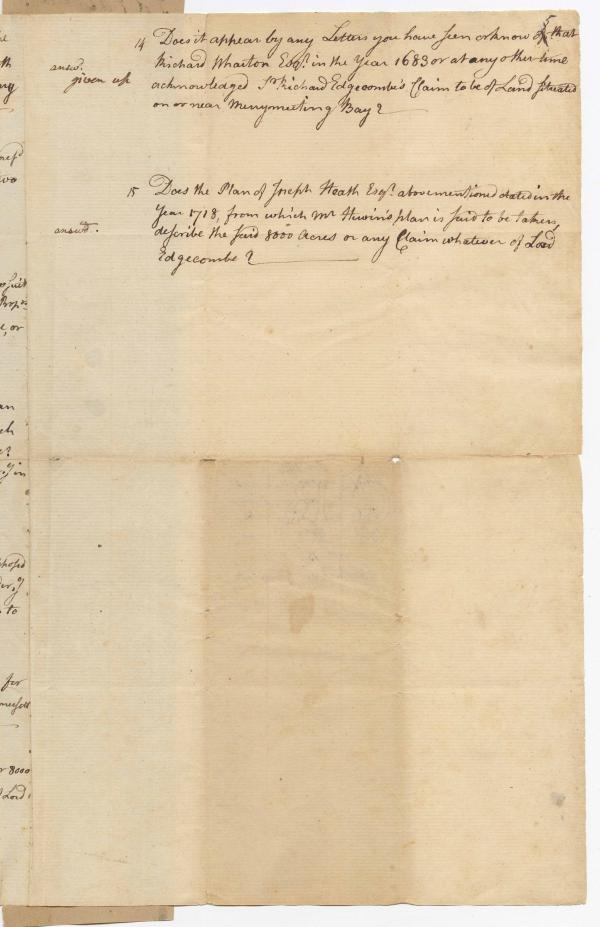 5
14 Does it appear by any Letters you have seen or know of that
Richard Wharton Esqr. in the Year 1683 or at any other time
answd.
given up
acknowledged Sr. Richard Edgecombe's Claim to be of Land situated
on or near Merrymeeting Bay?
15 Does the Plan of Joseph Heath Esqr. abovementioned dated in the
Year 1718, from which Mr. plan is said to be taken,
answd.
describe the said 8000 Acres or any Claim whatever of Lord
Edgecombe?
or
to
for
8000
Lord